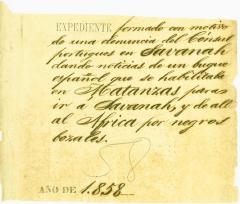 EXPEDIENTE formado con motivo
de una denuncia del Cónsul
portugues en Savanah
dando noticias de un buque
español que se habilitaba
en Matanzas para
ir á Savanah, y de allí
al Africa por negros
bozales.
58
AÑO DE 1.858